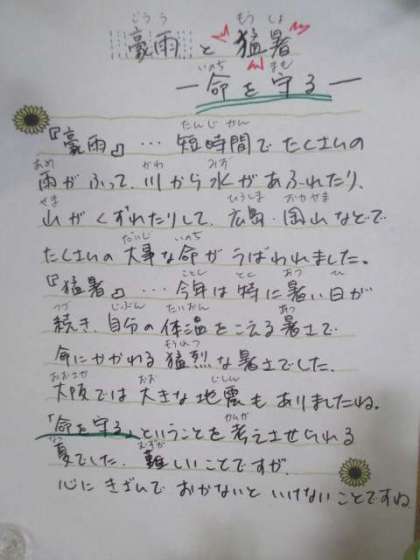 豪雨と猛暑
―命を守る―
『豪雨』… 短時間でたくさんの
雨がふって、川から水があふれたり、
山がくずれたりして、広島・岡山などで
たくさんの大事な命がうばわれました。
『猛暑』… 今年は特に暑い日が
続き、自分の体温をこえる暑さで
命にかかわる猛烈な暑さでした。
大阪では大きな地震もありましたね。
「命を守る」ということを考えさせられる
夏でした。難しいことですが、
心にきざんでおかないといけないことですね